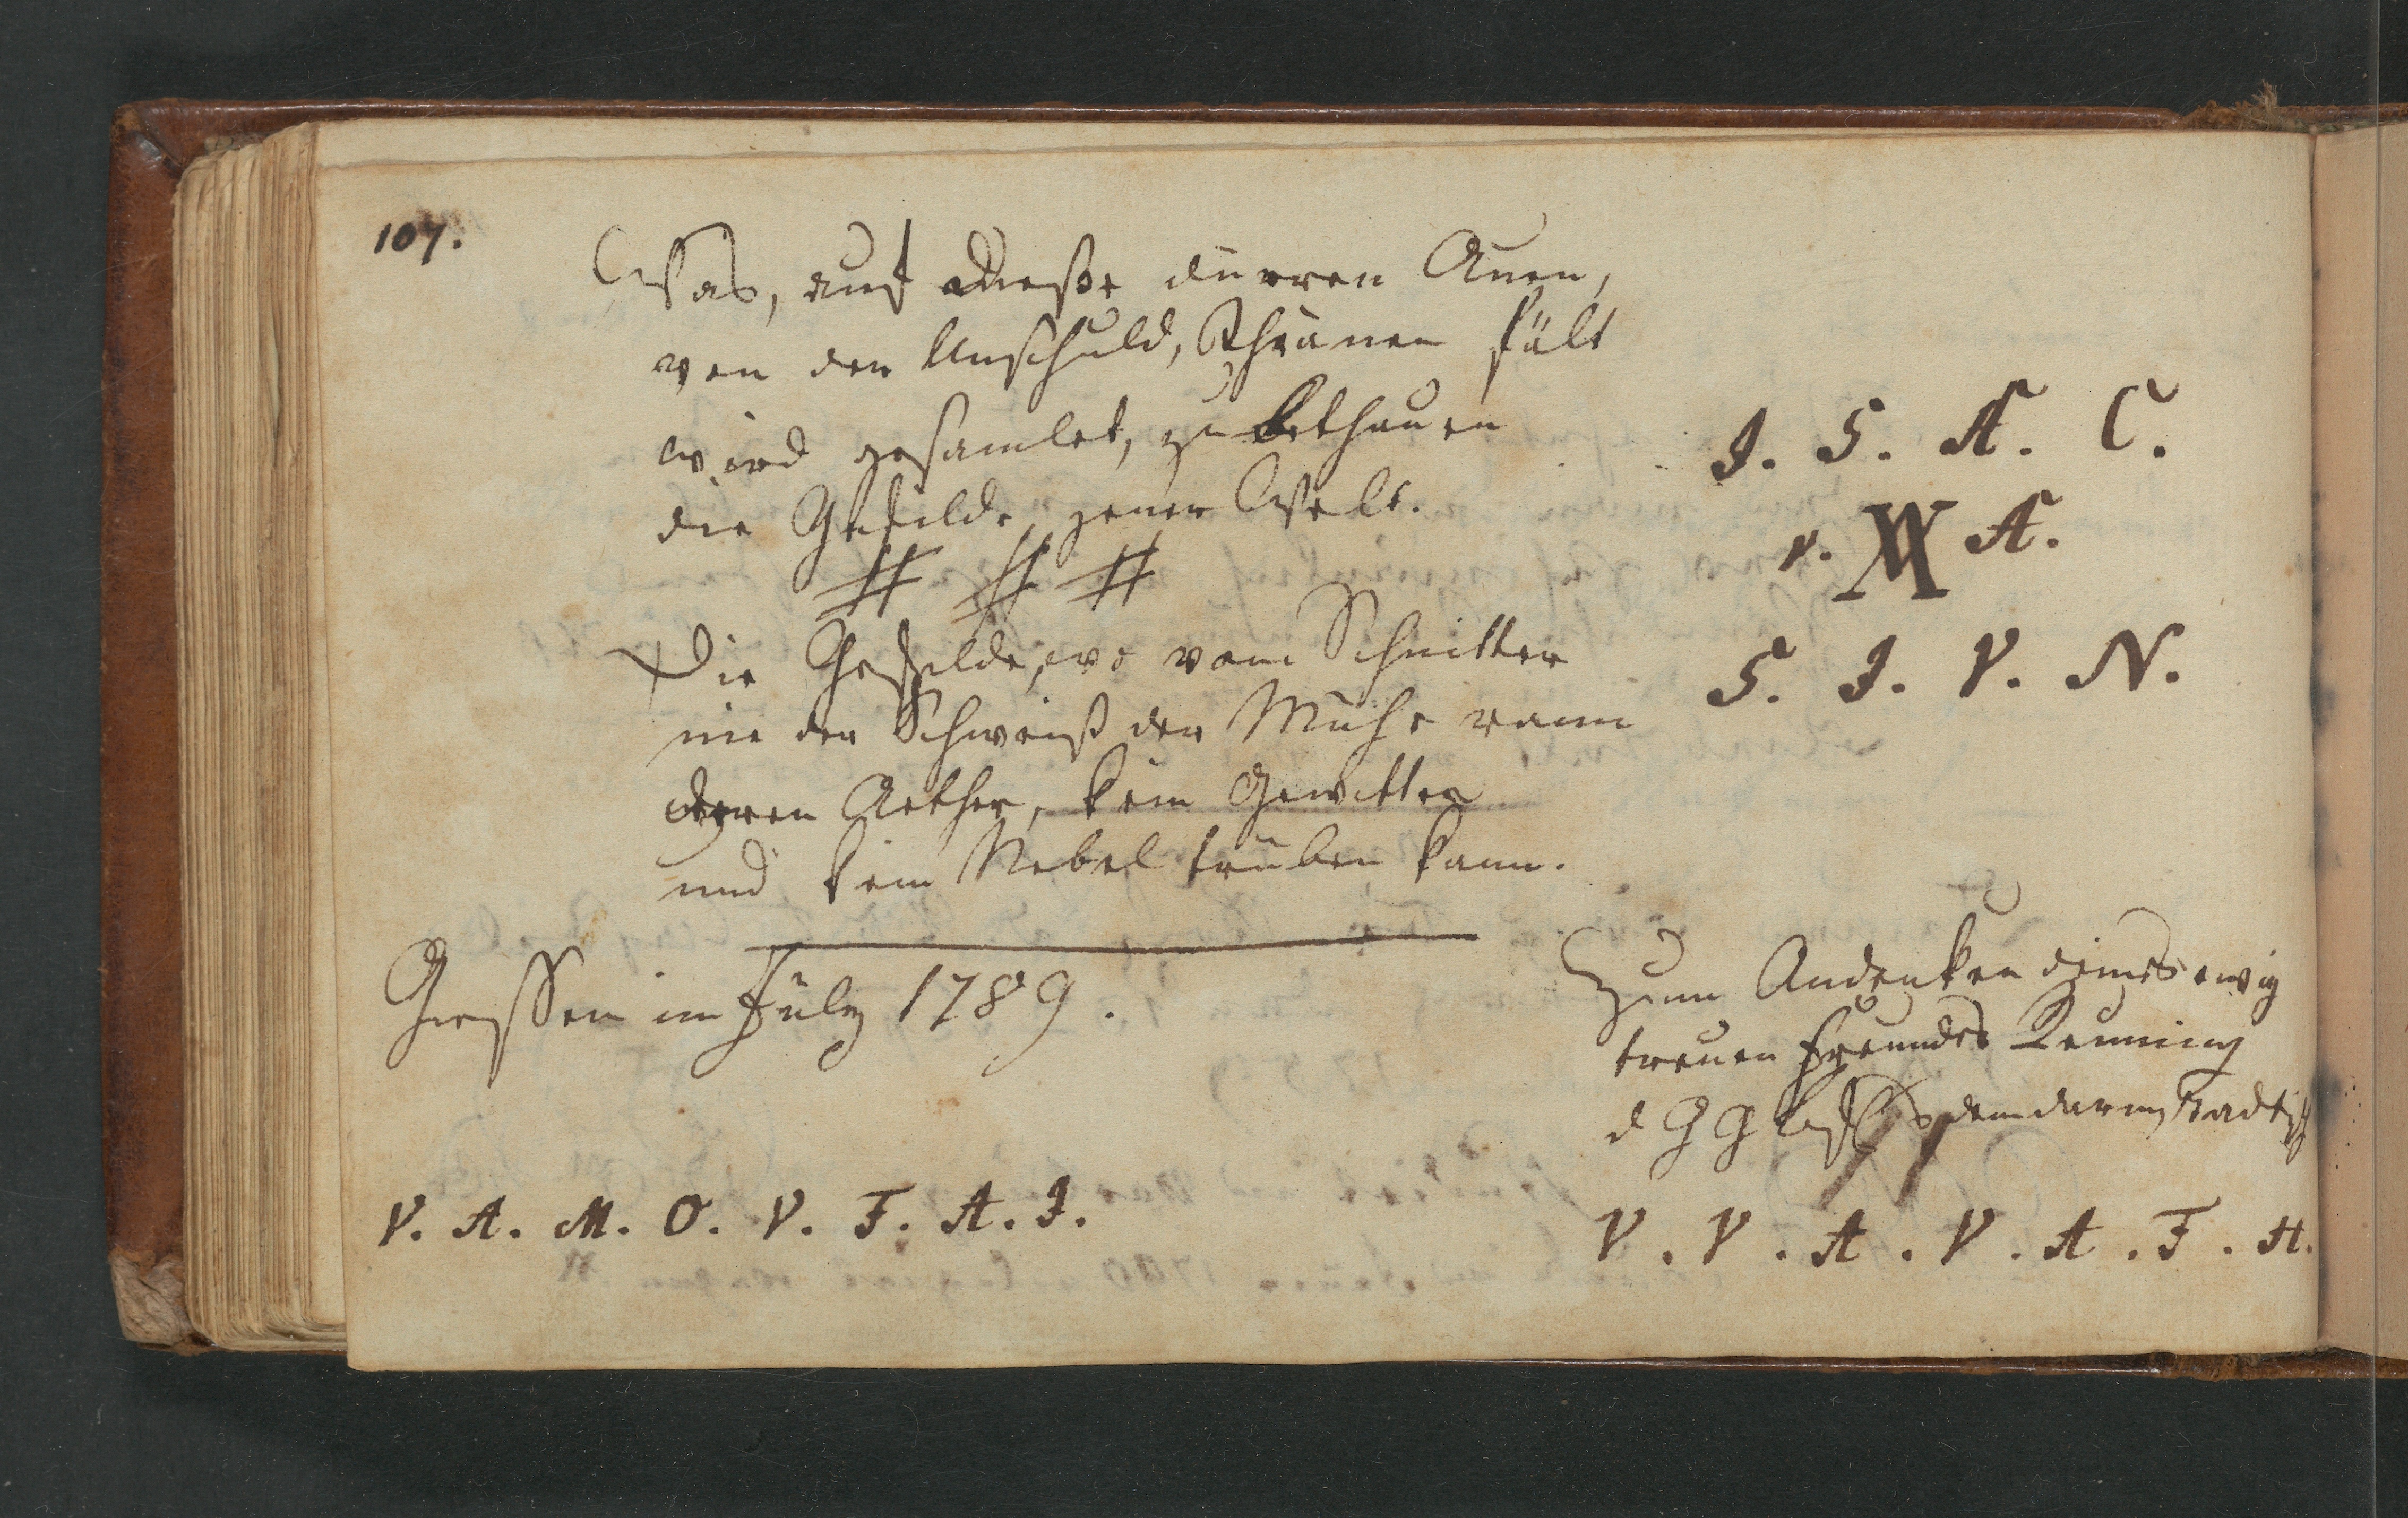 107.
Was, auf diese dürren Auen,
von der Unschuld, Thränen fält
wird gesamlet, zu bethauen
die Gefilde, jener Welt.
# # #
Die Gefilde, wo vom Schnitter
nie der Schweiß der Mühe rann
deren Aether, kein Gewitter
und kein Nebel trüben kann.
J. S. A. C.
v. A.
S. J. V. N.
Giessen im July 1789.
Zum Andenken eines ewig
treuen Freundes
d G G aus dem darmstädtisch
V. A. M. O. V. F. A. J.
V. V. A. V. A. F. H.